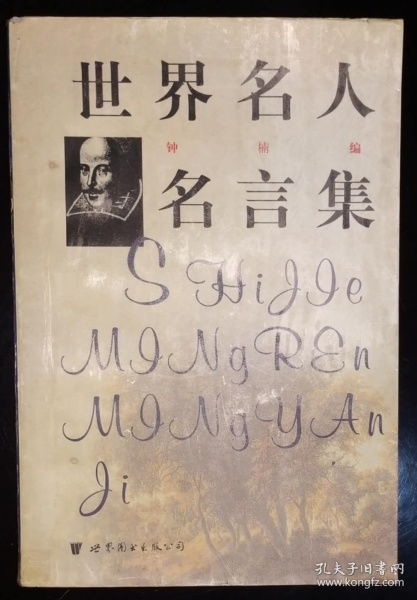 世界名人
钟楠编
名言集
SHiJIe
MINgREn
MINgYAn
Ji
世界图书出版公司
孔夫子旧书网
www.kongfz.com